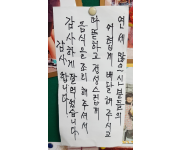 연세 많으신 분들의
어렵게 배달해 주시고
따뜻하고 정성스럽게
음식을 조리해 주셔서
감사하게 잘 먹었습니다
감사합니다